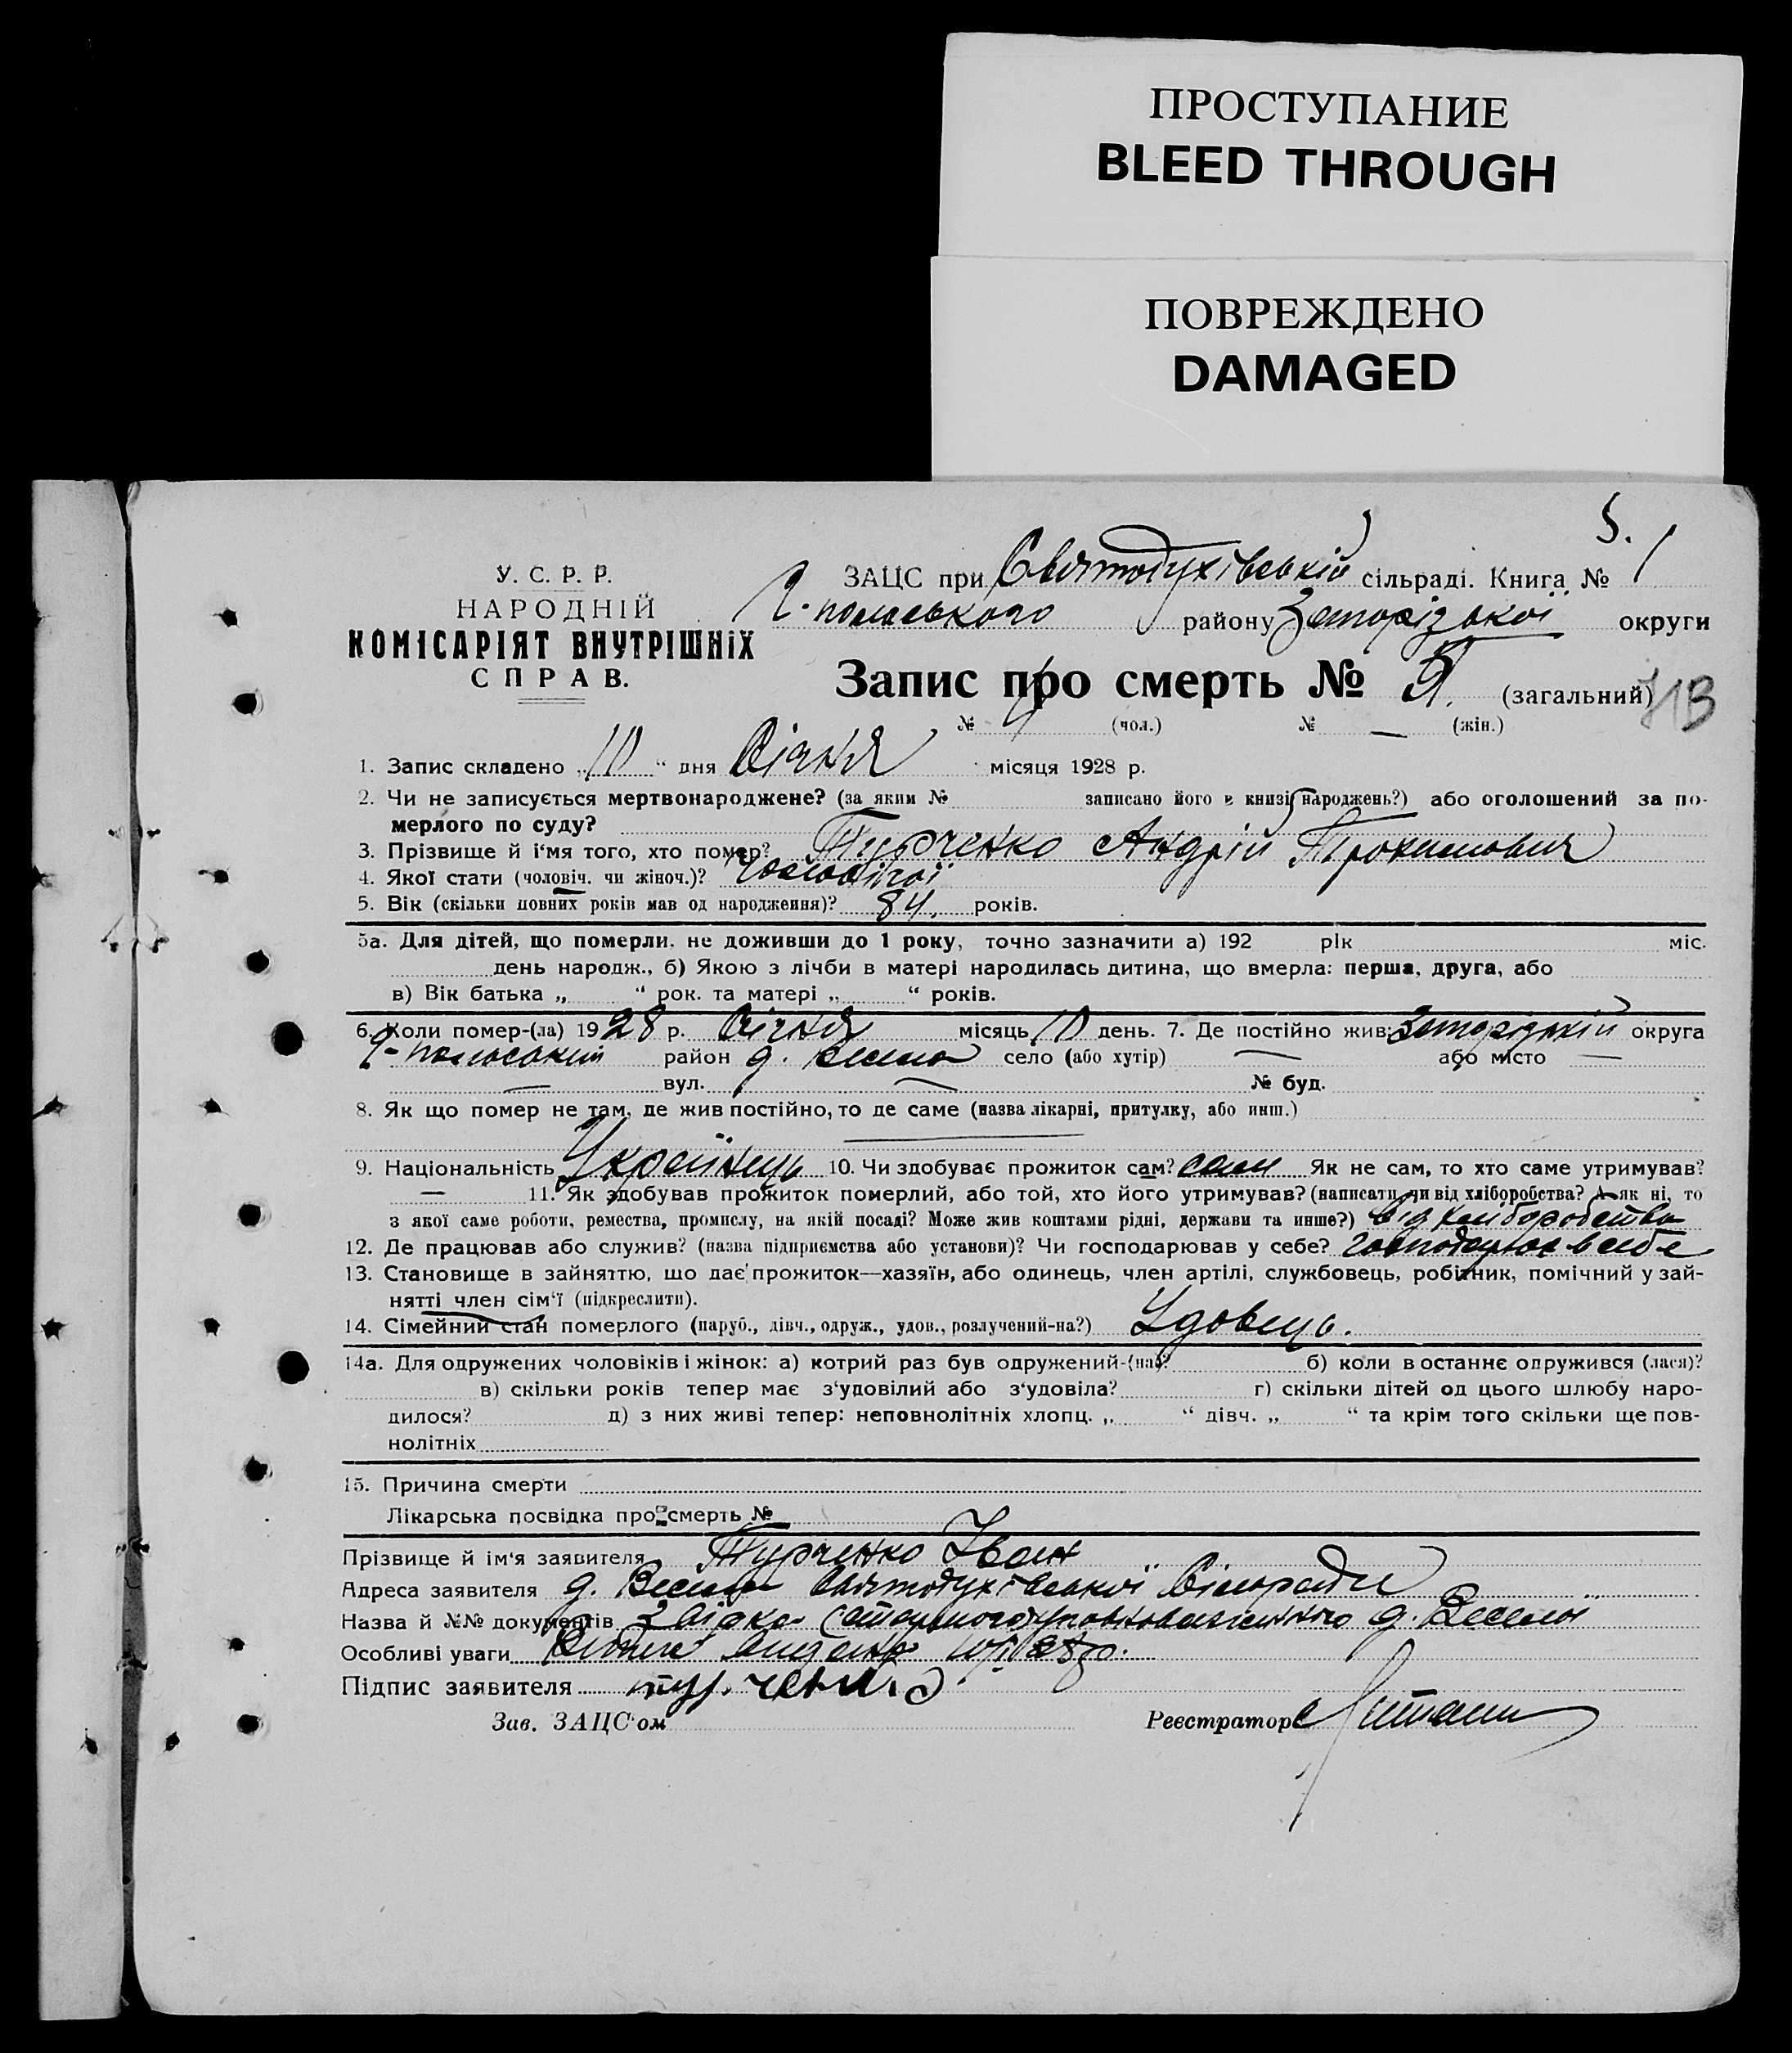 ПРОСТУПАНИЕ
BLEED THROUGH
ПОВРЕЖДЕНО
DAMAGED
5.
У. С. Р. Р.
НАРОДНІЙ
КОМІСАРІЯТ ВНУТРІШНІХ
СПРАВ.
ЗАЦС при Святодухівській сільраді. Книга № 1
району Запорізької округи
Запис про смерть № 5. (загальний)
№ (чол.) № — (жін.)
1. Запис складено „10“ дня Січня місяця 1928 р.
2. Чи не записується мертвонароджене? (за яким № записано його в книзі народжень?) або оголошений за по-
мерлого по суду?
3. Прізвище й і'мя того, хто помер? Турченко Андрій
4. Якої стати (чоловіч. чи жіноч.)? Чоловічої
5. Вік (скільки повних років мав од народження)? 84. років.
5а. Для дітей, що померли, не доживши до 1 року, точно зазначити а) 192 рік міс.
день народж., б) Якою з лічби в матері народилась дитина, що вмерла: перша, друга, або
в) Вік батька „ “ рок. та матері „ “ років.
6. Коли помер-(ла) 1928 р. Січня місяць 10 день. 7. Де постійно жив: Запорізькій округа
район д. Весела село (або хутір) — або місто —
— вул. — № буд.
8. Як що помер не там, де жив постійно, то де саме (назва лікарні, притулку, або инш.)
9. Національність Українець 10. Чи здобуває прожиток сам? сам Як не сам, то хто саме утримував?
— 11. Як здобував прожиток померлий, або той, хто його утримував? (написати чи від хліборобства? А як ні, то
з якої саме роботи, ремества, промислу, на якій посаді? Може жив коштами рідні, держави та инше?) від хліборобства
12. Де працював або служив? (назва підприємства або установи)? Чи господарював у себе? господарював в себе
13. Становище в зайняттю, що дає прожиток—хазяїн, або одинець, член артілі, службовець, робітник, помічний у зай-
нятті член сім'ї (підкреслити).
14. Сімейний стан померлого (паруб., дівч., одруж., удов., розлучений-на?) Удовець.
14а. Для одружених чоловіків і жінок: а) котрий раз був одружений-(на)? б) коли в останнє одружився (лася)?
в) скільки років тепер має з'удовілий або з'удовіла? г) скільки дітей од цього шлюбу наро-
дилося? д) з них живі тепер: неповнолітніх хлопц. „ “ дівч. „ “ та крім того скільки ще пов-
нолітніх
15. Причина смерти
Лікарська посвідка про смерть №
Прізвище й ім'я заявителя Турченко Іван
Адреса заявителя д. Весела Святодухівської Сільради
Назва й №№ документів д. Веселої
Особливі уваги
Підпис заявителя
Зав. ЗАЦС'ом Реєстратор